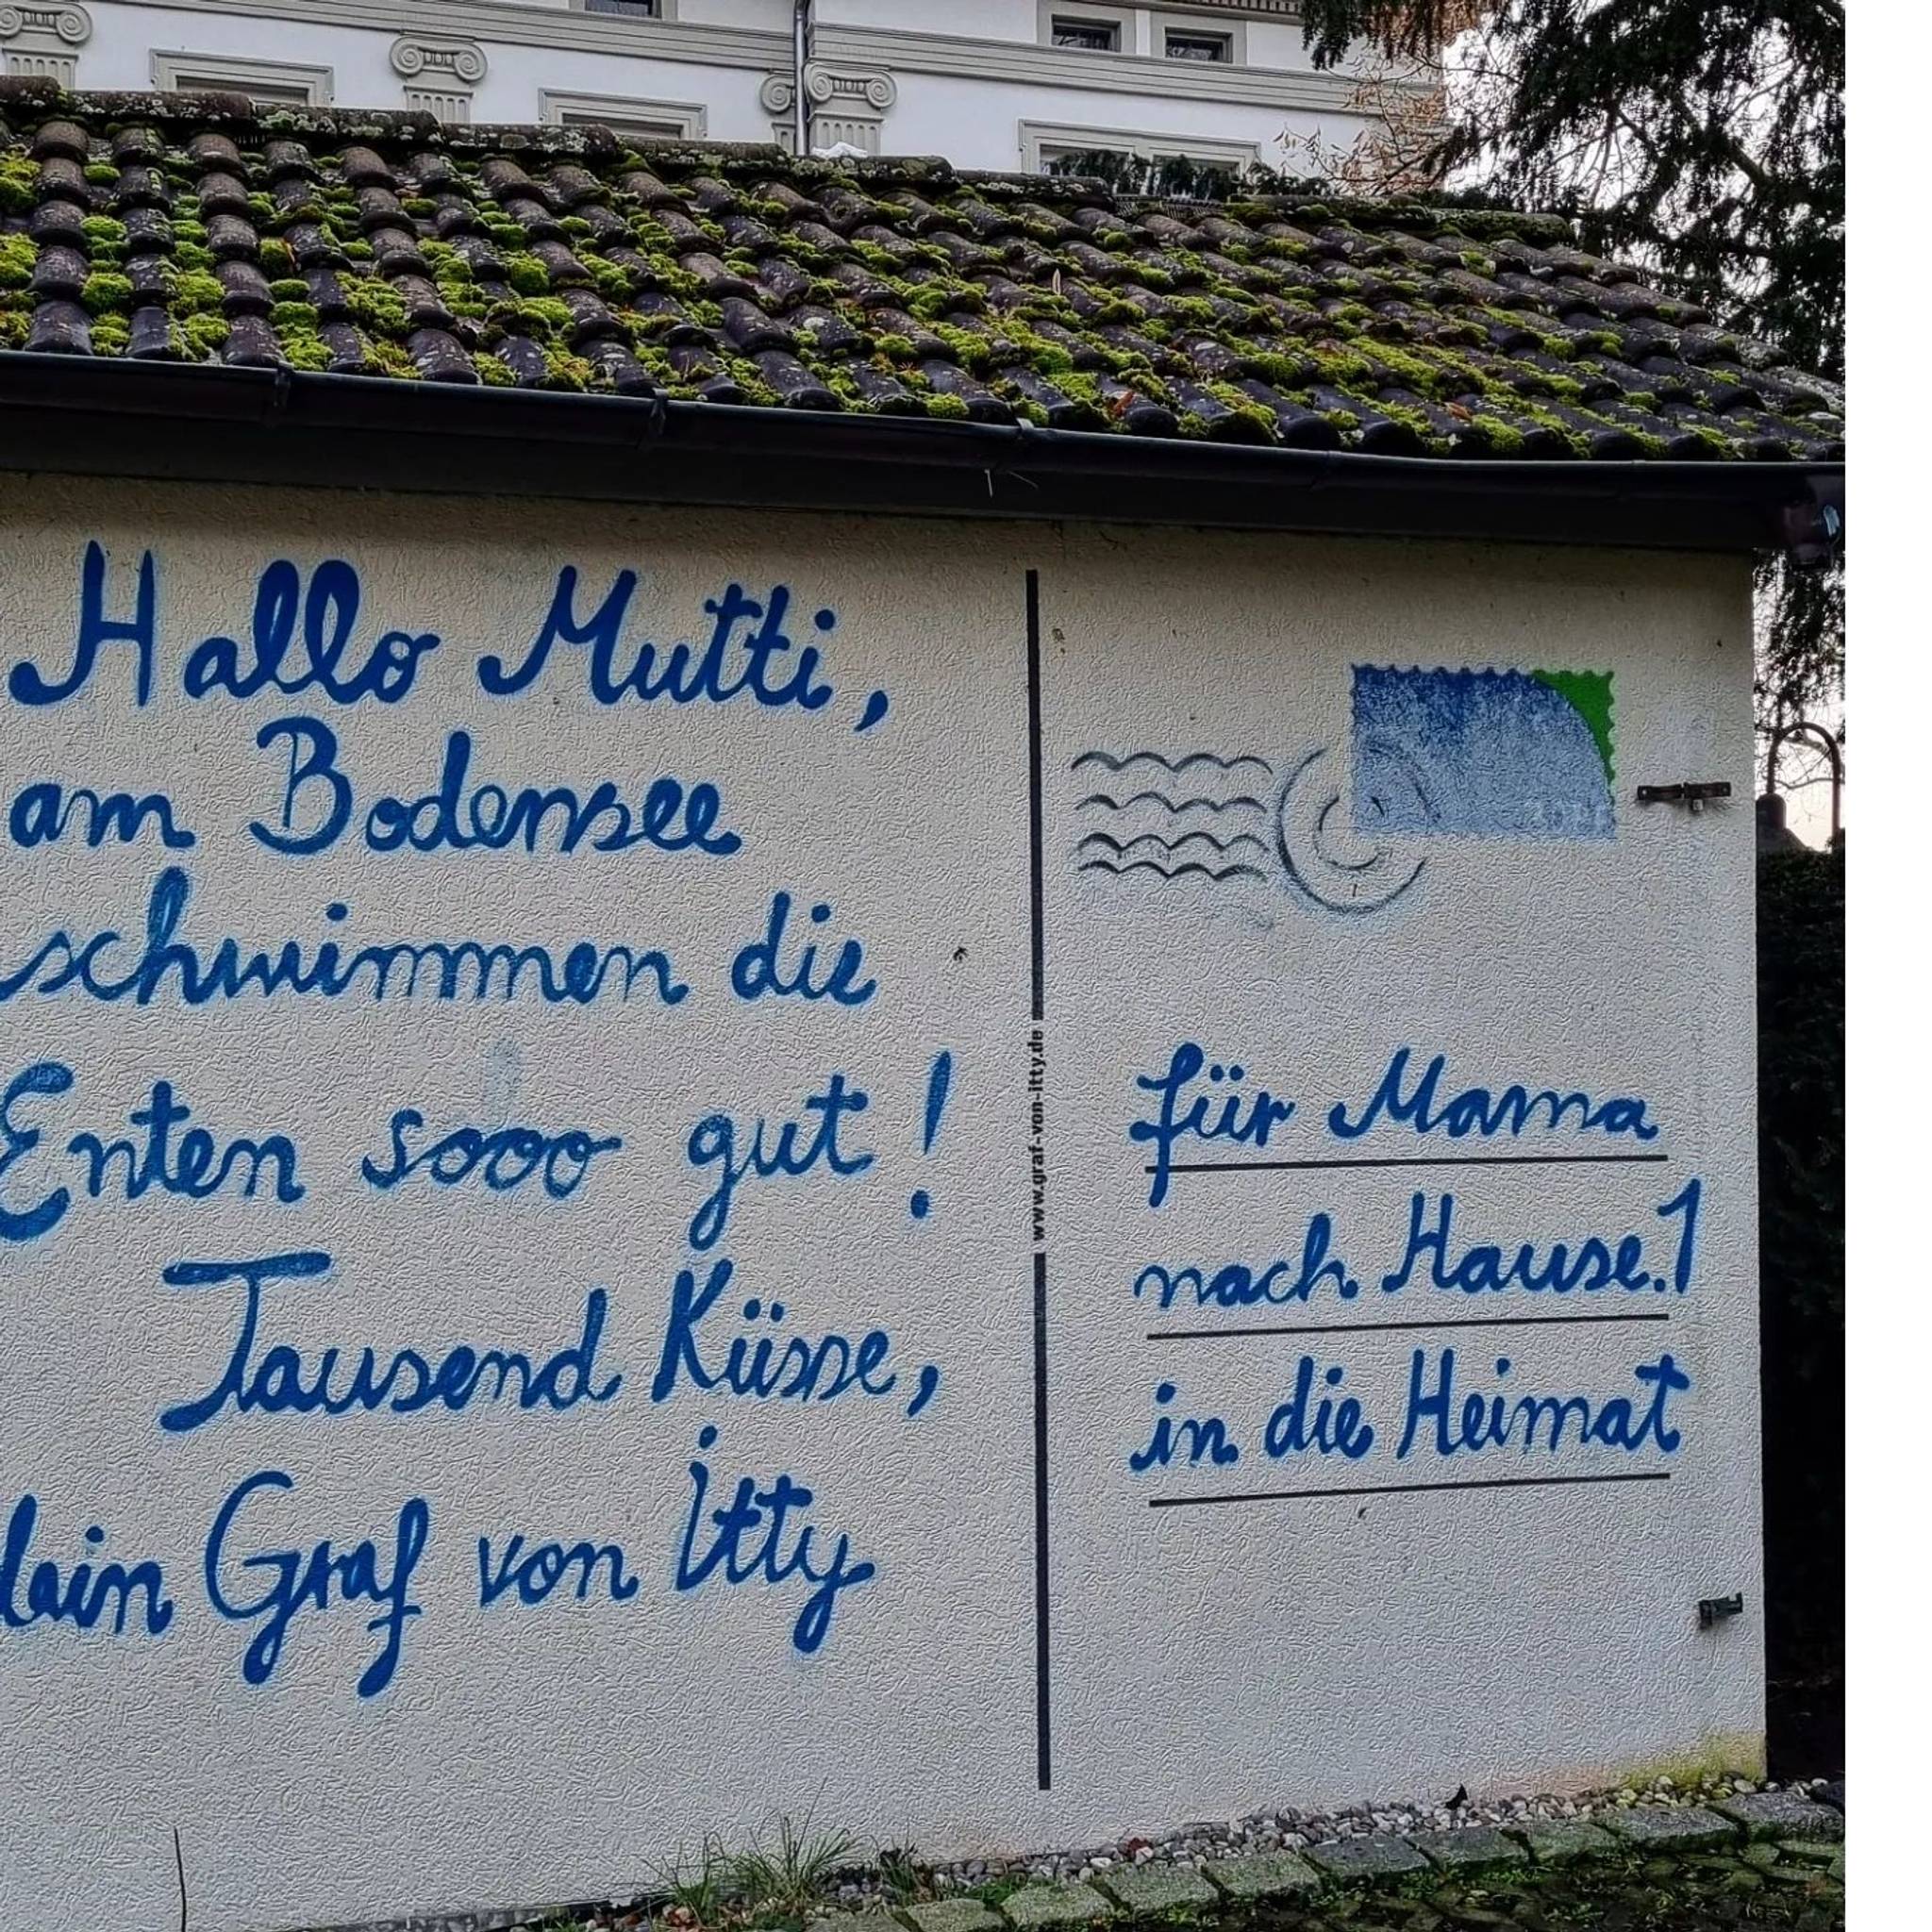 Hallo Mutti,
am Bodensee
schwimmen die
Enten sooo gut!
Tausend Küsse,
dein Graf von Itty
www.graf-von-itty.de
für Mama
nach Hause.1
in die Heimat